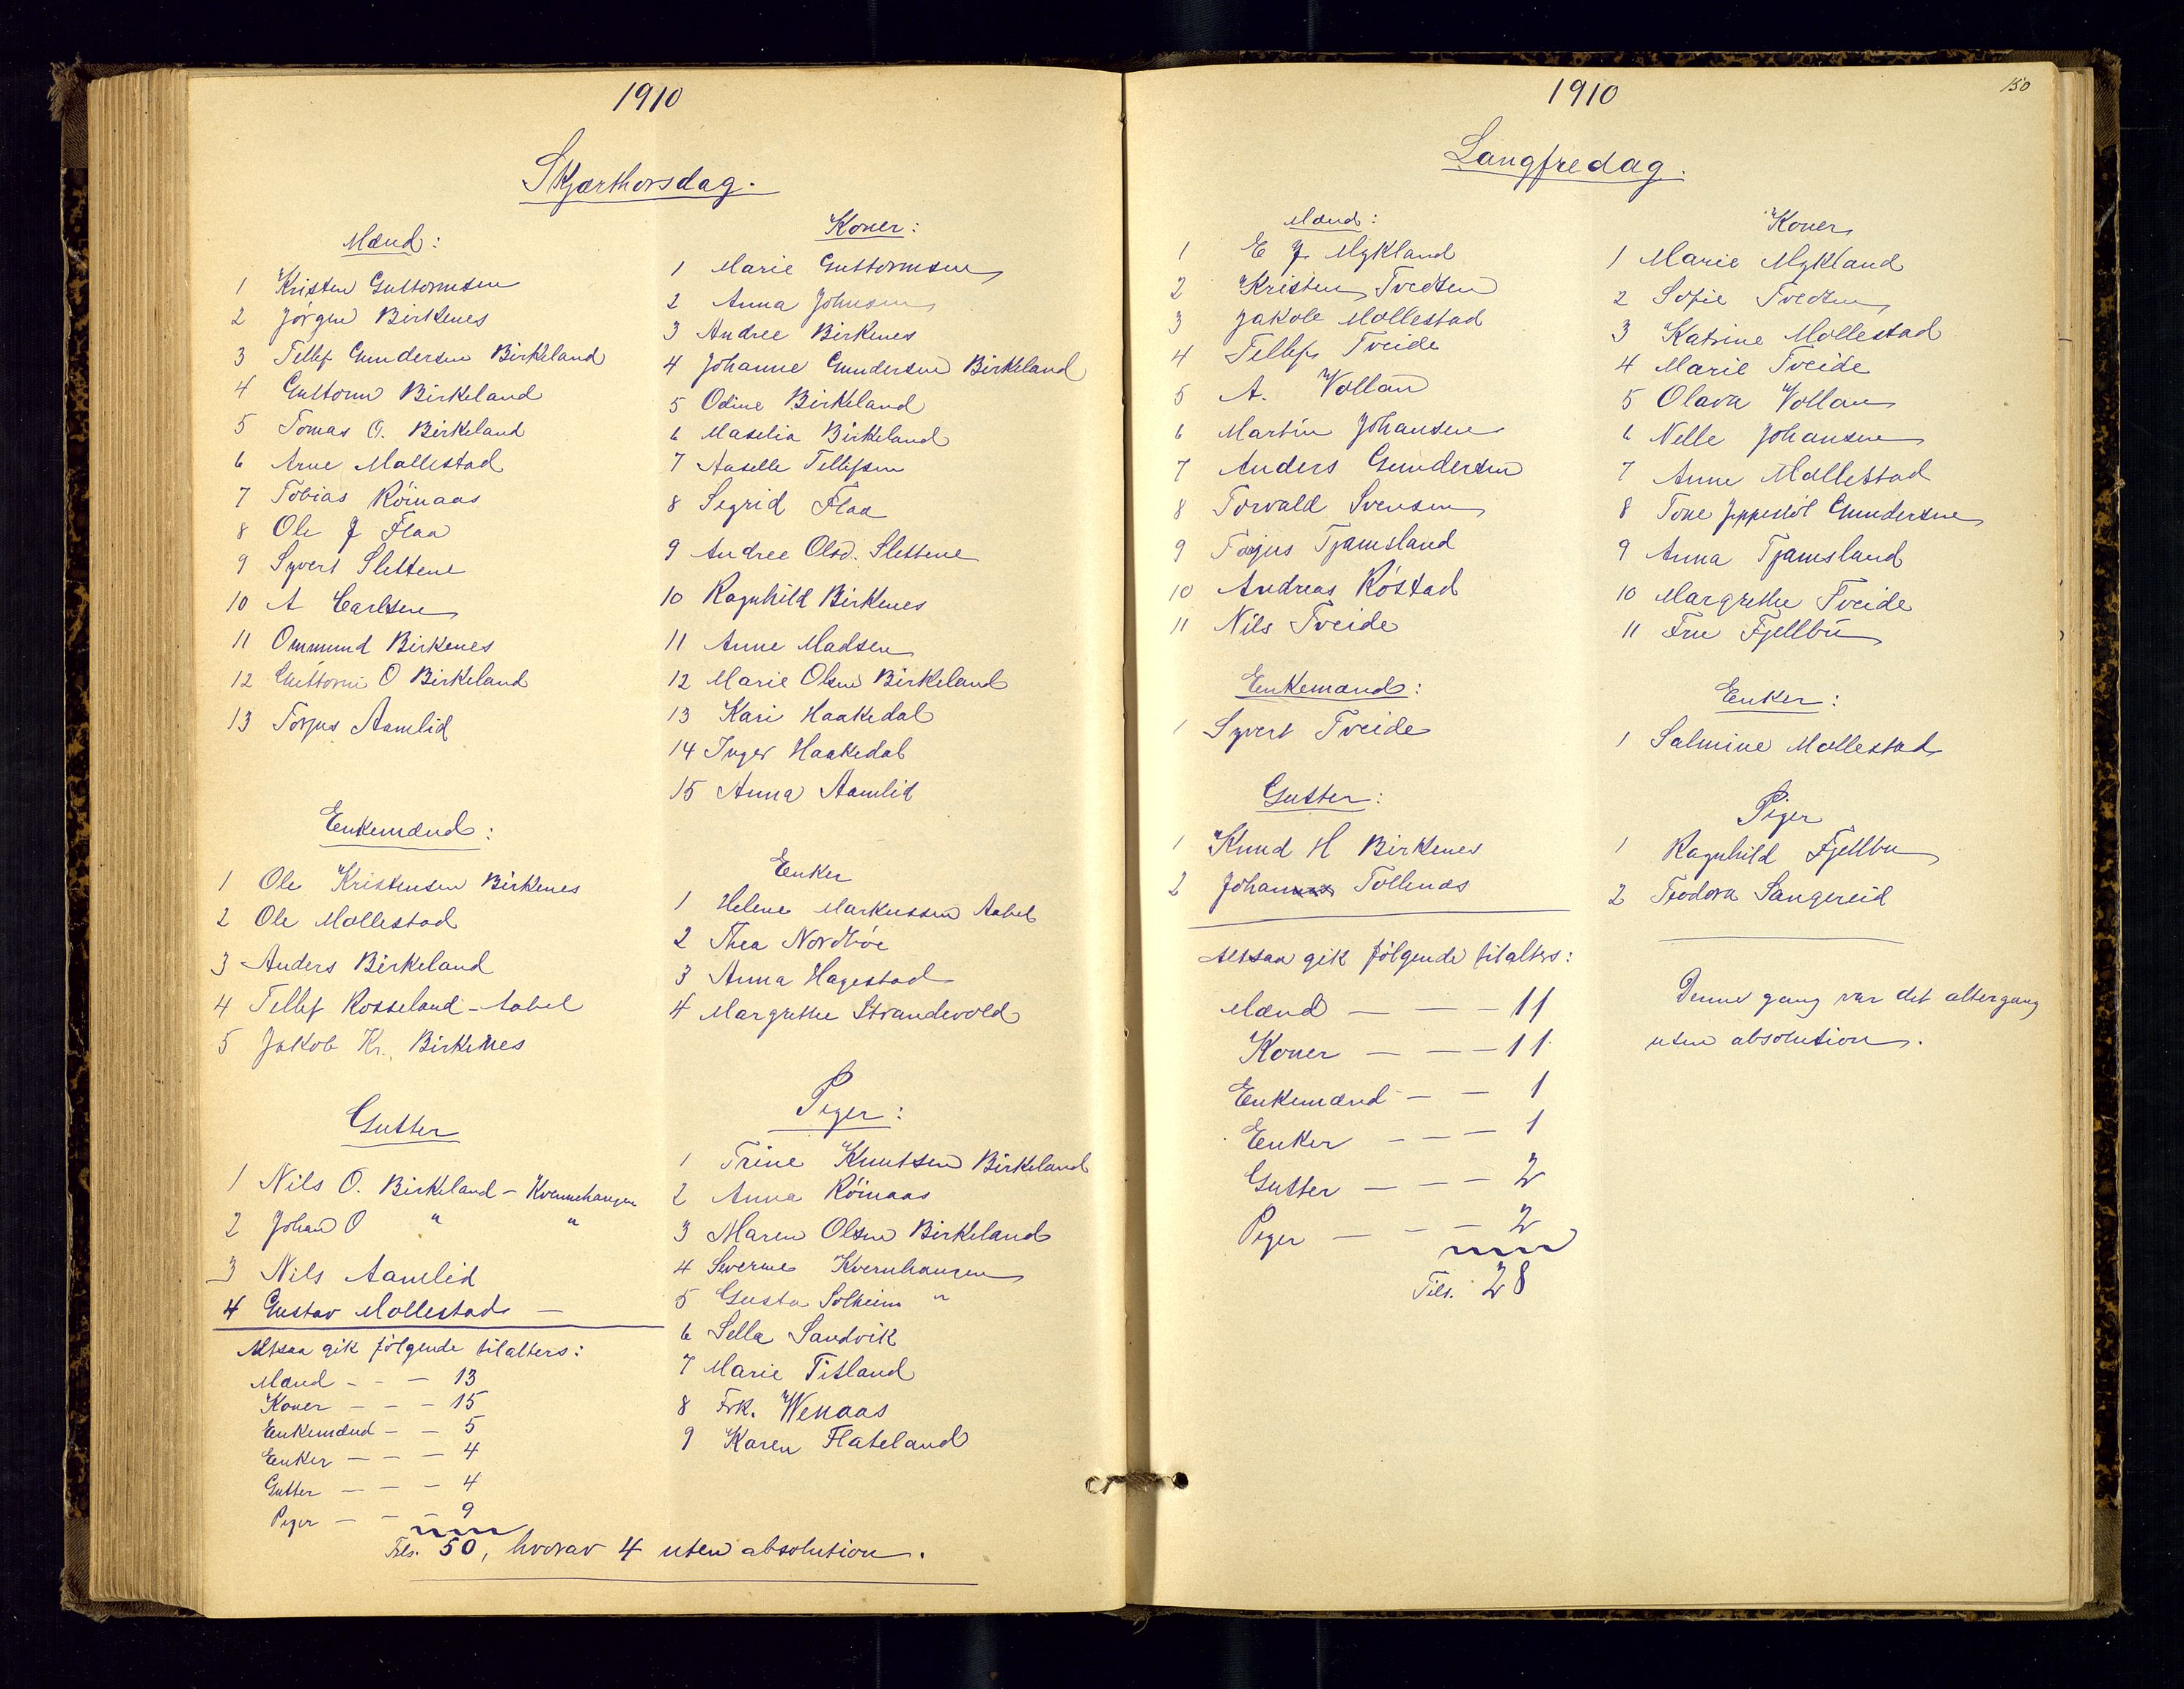 1910
Skjærthorsdag.
Mænd:
1 Kristen Guttormsen
2 Jörgen Birkenes
3 Tellef Gundersen Birkeland
4 Guttorm Birkeland
5 Tomas O. Birkeland
6 Arne Mollestad
7 Tobias Röinaas
8 Ole J Flaa
9 Syvert Slettene
10 A Carlsen
11 Ommund Birkenes
12 Guttorm O Birkeland
13 Torjus Aamlid
Enkemænd:
1 Ole Kristensen Birkenes
2 Ole Mollestad
3 Anders Birkeland
4 Tellef Rosseland - Aabel
5 Jakob Kr. Birkenes
Gutter
1 Nils O. Birkeland - Kvennehaugen
2 Johan O " "
3 Nils Aamlid
4 Gustav Mollestad —
Altsaa gik følgende tilalters:
Mænd - - - 13
Koner - - - 15
Enkemænd - - 5
Enker - - - 4
Gutter - - - 4
Piger - - - 9
Tils. 50, hvorav 4 uten absolution.
Koner:
1 Marie Guttormsen
2 Anna Johnsen
3 Andree Birkenes
4 Johanne Gundersen Birkeland
5 Odine Birkeland
6 Maselia Birkeland
7 Aaselle Tellefsen
8 Sigrid Flaa
9 Andree Olsd. Slettene
10 Ragnhild Birkenes
11 Anne Madsen
12 Marie Olsen Birkeland
13 Kari Haakedal
14 Inger Haakedal
15 Anna Aamlid
Enker
1 Helene Markussen Aabel
2 Thea Nordböe
3 Anna Hagestad
4 Margrethe Strandevold
Piger:
1 Trine Knutsen Birkeland
2 Anna Röinaas
3 Maren Olsen Birkeland
4 Severine Kvernhaugen
5 Gusta Solheim "
6 Sella Sandvik
7 Marie Titland
8 Frk. Wenaas
9 Karen Flateland
150
1910
Langfredag.
Mænd:
1 E J. Mykland
2 Kristen Tvedten
3 Jakob Mollestad
4 Tellef Tveide
5 A. Vollan
6 Martin Johansen
7 Anders Gundersen
8 Torvald Svensen
9 Torjus Tjamsland
10 Andreas Röstad
11 Nils Tveide
Enkemænd:
1 Syvert Tveide
Gutter:
1 Knud H Birkenes
2 Johannes Tollenæs
Altsaa gik følgende tilalters:
Mænd — — — 11
Koner — — — 11
Enkemænd — — 1
Enker — — — 1
Gutter — — — 2
Piger — — — 2
Tils. 28
Koner
1 Marie Mykland
2 Sofie Tvedten
3 Katrine Mollestad
4 Marie Tveide
5 Olava Vollan
6 Nelle Johansen
7 Anne Mollestad
8 Tone Jeppestöl Gundersen
9 Anna Tjamsland
10 Margrethe Tveide
11 Fru Fjellbu
Enker:
1 Salmine Mollestad
Piger
1 Ragnhild Fjellbu
2 Teodora Sangereid
Denne gang var det altergang
uten absolution.